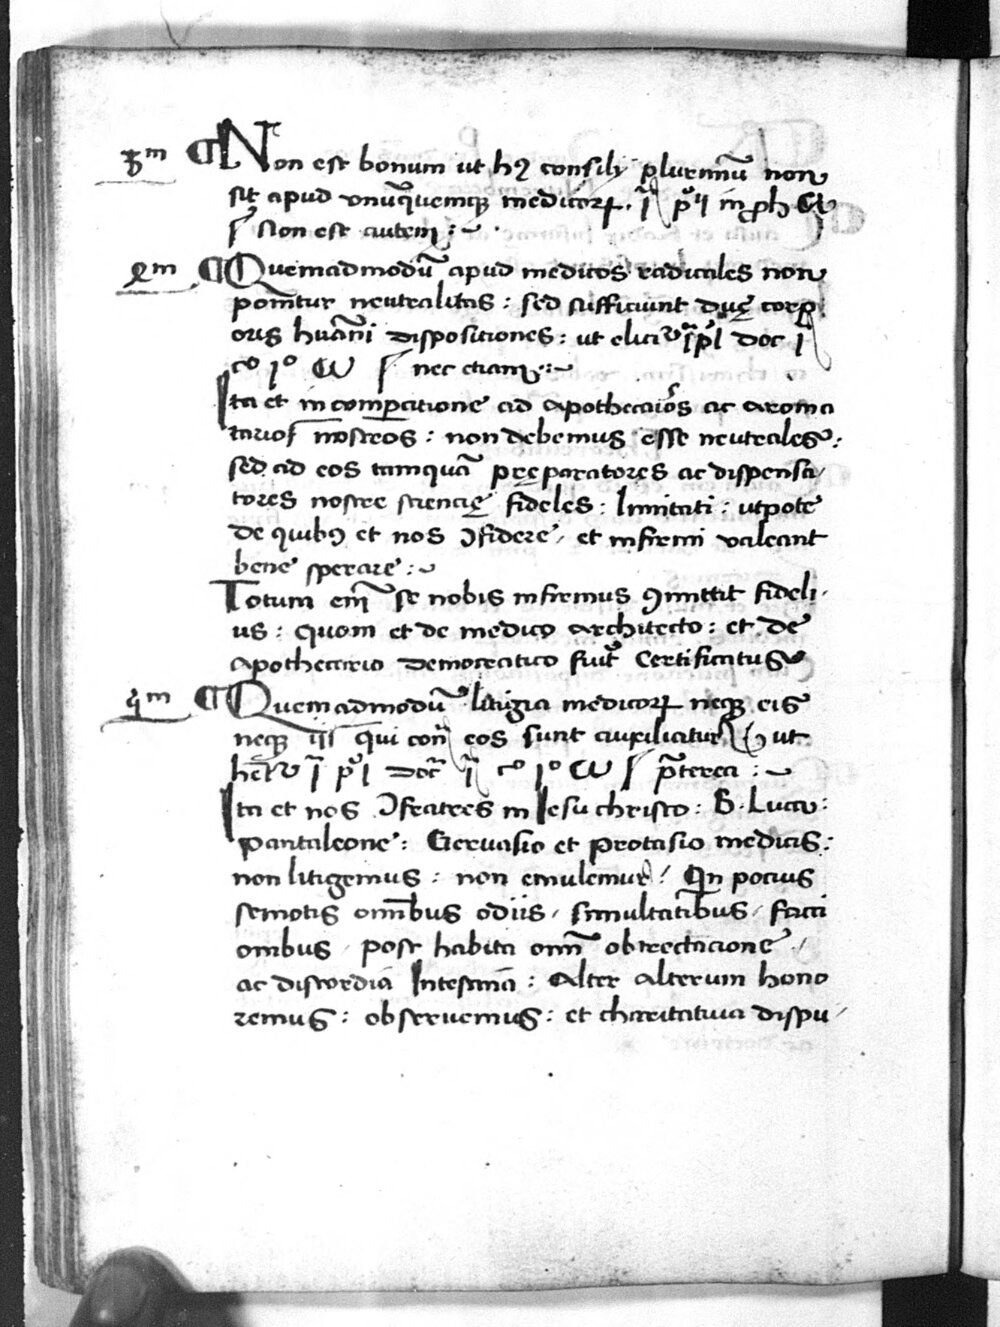 ¶ Non est bonum ut hꝫ consilij plurimū non
sit apud vnūquemqꝫ medicoꝝ.
Non est autem :~
¶ Quemadmodū apud medicos radicales non
ponūtur neutralitas : sed sufficiunt duę corp
oris huāni dispositiones : ut elici
nec etiam :~
Ita et in compatione ad apothecaios ac aroma
tarios nostros : non debemus esse neutrales :
sed ad eos tamquā pręparatores ac dispensa/
tores nostre sciencię fideles : Inuitati : utpote
de quibꝯ et nos ɔfidere / et infirmi valeant
bene sperare :~
Totum em̄ se nobis infirmus ꝯmittit fideli
us : quom et de medico architecto : et de
apothecario democratico fuit Certificatus
¶ Quemadmodū litigia medicoꝝ neqꝫ eis
neqꝫ qui eos sunt auxiliatur ut
p̄terea :~
Ita et nos ɔfratres in Iesu christo : B. Luca :
pantaleone : Geruasio et Protasio medicis :
non litigemus : non emulemur / Qin pocius
semotis omībus odiis / simultatibus / facti
onibus / post habita omī obtrectacione /
ac discordiā Intestinā : Alter alterum hono
remus : obseruemus : et charitatiua dispu/